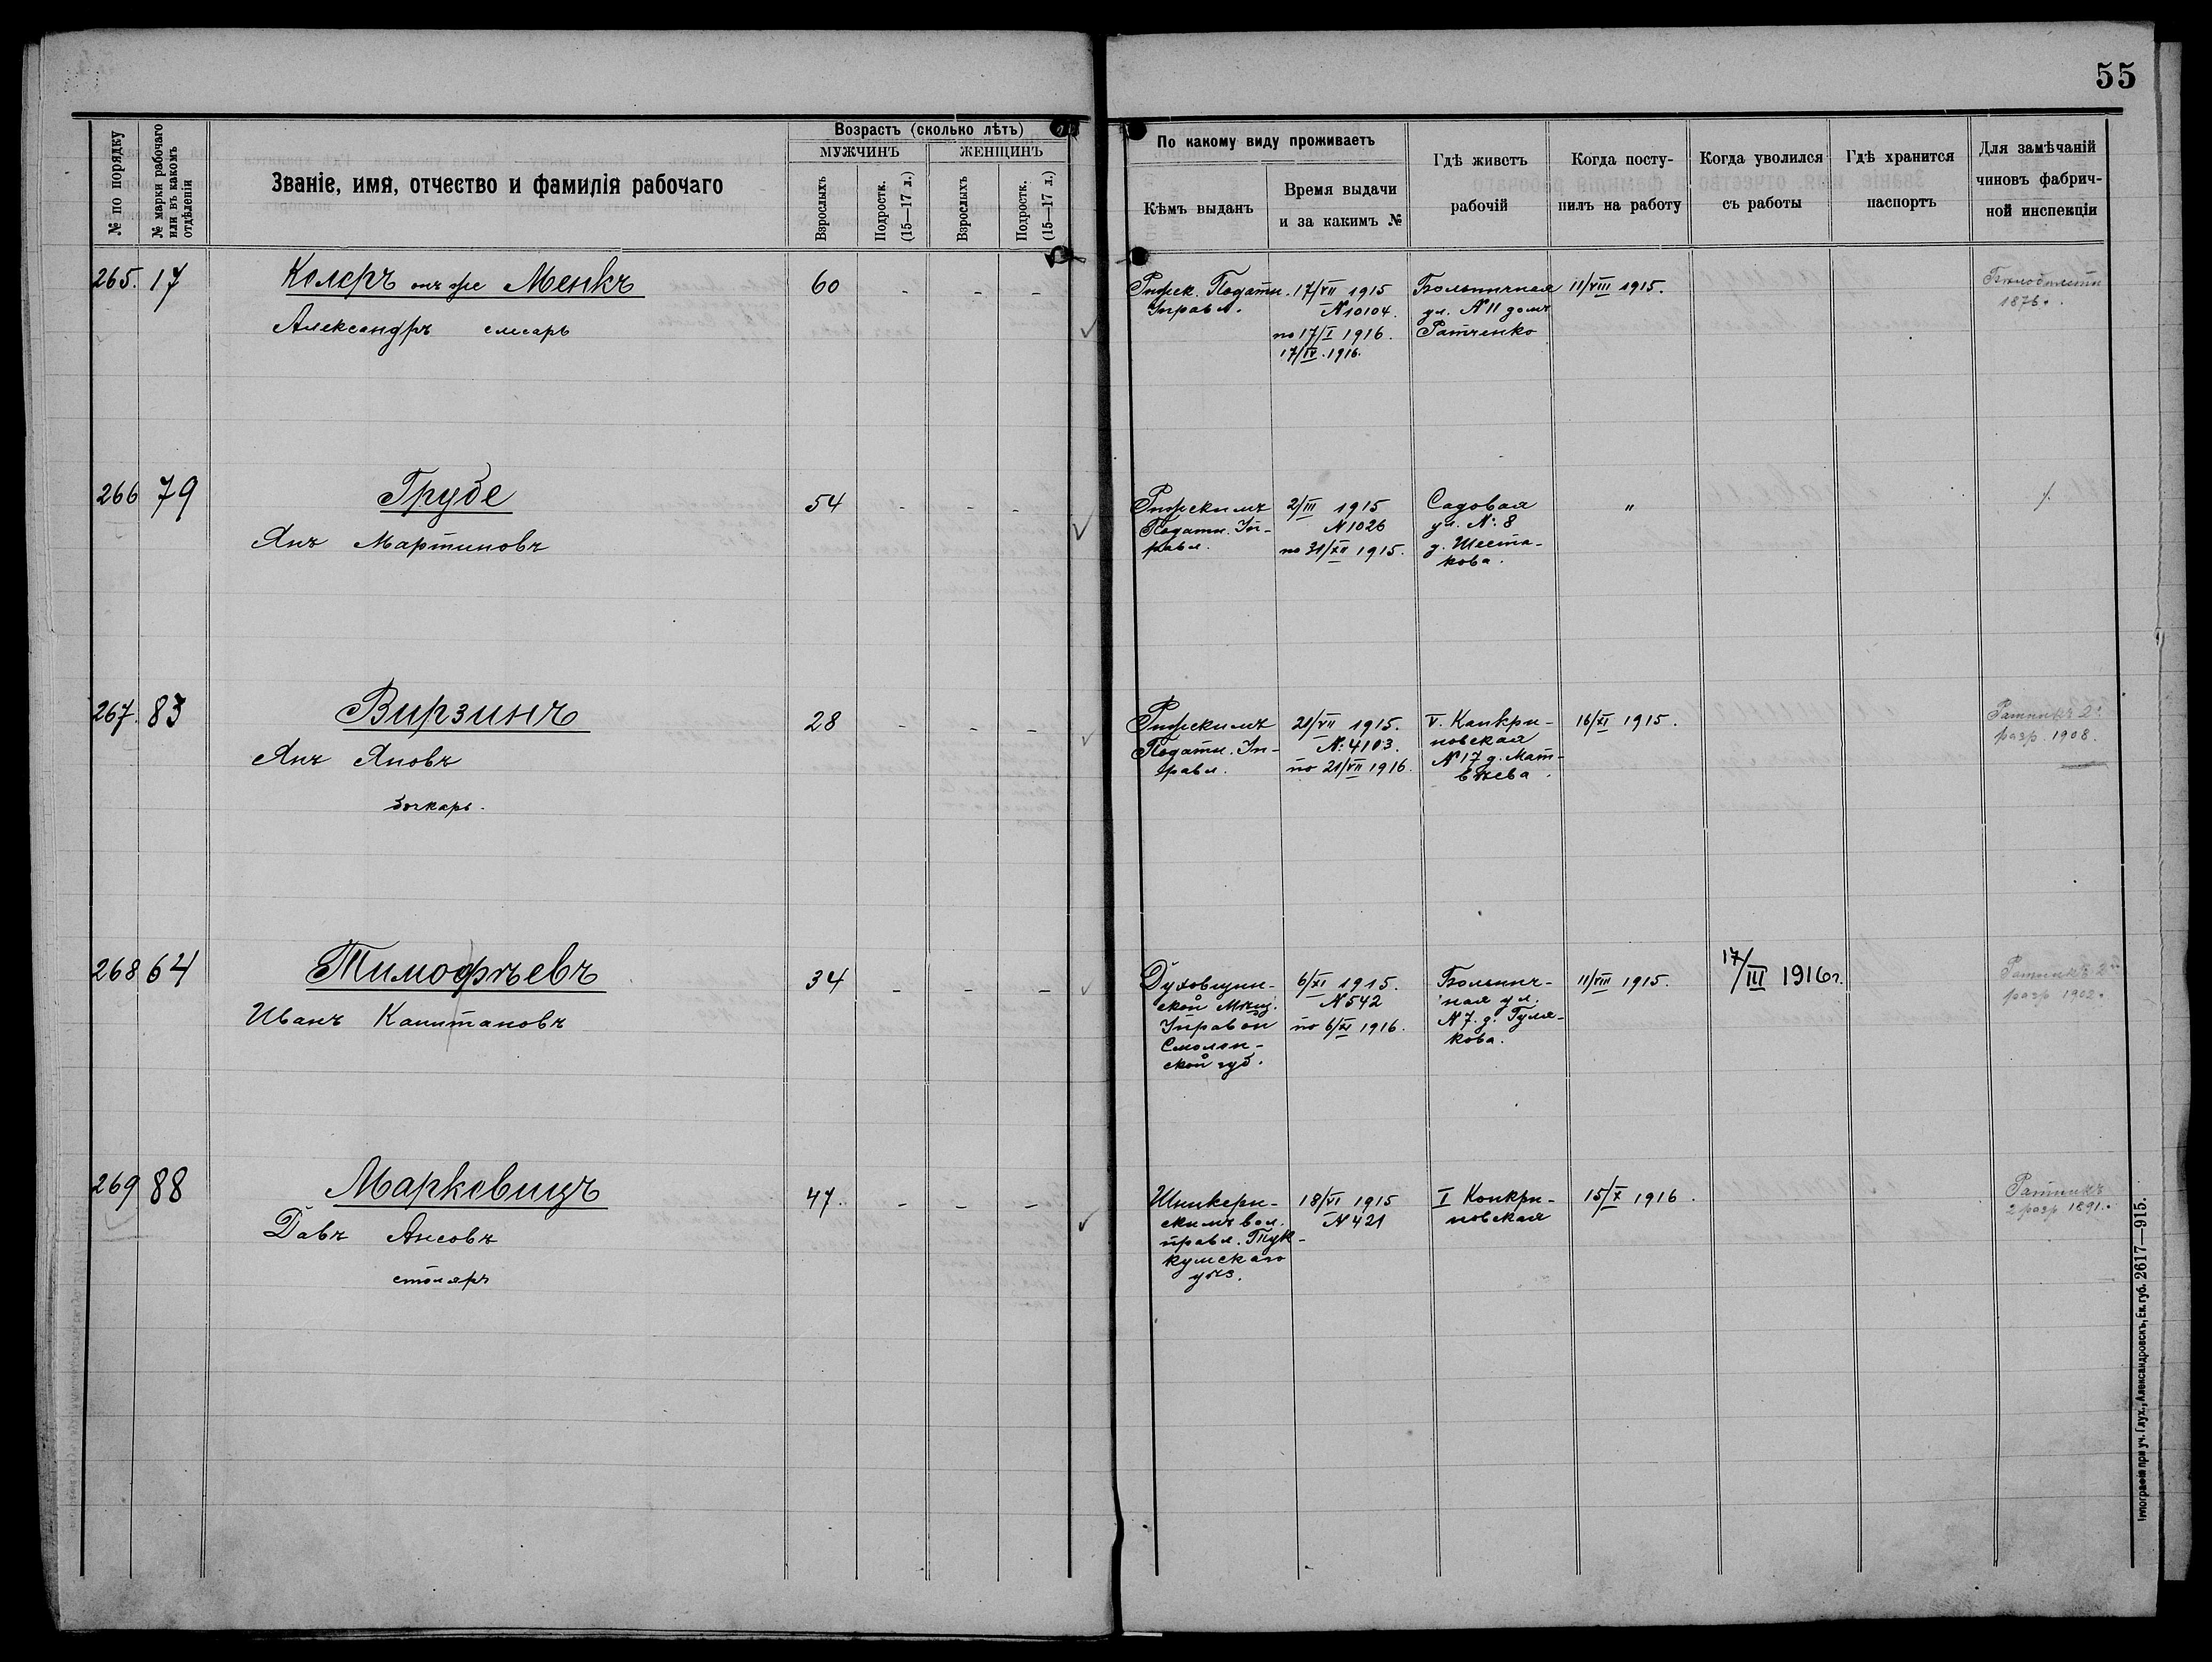 55
№ по порядку
№ марки рабочаго или въ какомъ отдѣленіи
Званіе, имя, отчество и фамилія рабочаго
Возрастъ (сколько лѣтъ)
МУЖЧИНЪ
ЖЕНЩИНЪ
Взрослыхъ
Подростк. (15—17 л.)
Взрослыхъ
Подростк. (15—17 л.)
По какому виду проживаетъ
Кѣмъ выданъ
Время выдачи
и за какимъ №
Гдѣ живетъ
рабочій
Когда посту-
пилъ на работу
Когда уволился
съ работы
Гдѣ хранится
паспортъ
Для замѣчаній
чиновъ фабрич-
ной инспекціи
265. 17
Колеръ онъ же Менкъ
Александръ слесарь
60 - - -
Рижск. Податн.
Управл.
17/VII 1915
№ 10104.
по 17/I 1916.
17/IV. 1916.
Больничная
ул. № 11 домъ
Ратченко
11/VIII 1915.
1876.
266 79
Грубе
Янъ Мартиновъ
54 - - -
Рижскимъ
Податн. Уп-
равл.
2/III 1915
№ 1026
по 31/XII 1915.
Садовая
ул. №: 8
д. Шеста-
кова.
"
267. 83
Вирзинъ
Янъ Яновъ
бочкарь.
28 - - -
Рижскимъ
Податн. Уп-
равл.
21/VII 1915.
№: 4103.
по 21/VII 1916.
V. Канкри-
новская
№ 17 д. Мат-
вѣева.
16/XI 1915.
Ратникъ 2
разр. 1908.
268 64
Тимофѣевъ
Иванъ Капитановъ
34 - - -
Духовщин-
ской Мѣщ.
Управой
Смолен-
ской губ.
6/XI 1915.
№ 542
по 6/XI 1916.
Больнич-
ная ул.
№ 7. д. Гуля-
кова.
11/VIII 1915.
17/III 1916 г.
Ратникъ 2
разр 1902.
269 88
Марковицъ
Давъ Ансовъ
столяръ
47. - - -
скимъ вол.
правл. Тук-
кумскаго
уѣз.
18/VI 1915
№ 421
I Конкри-
новская
15/X 1916.
Ратникъ
2 разр 1891.
Типографія при уч. Глух., Александровскъ, Ек. губ. 2617—915.